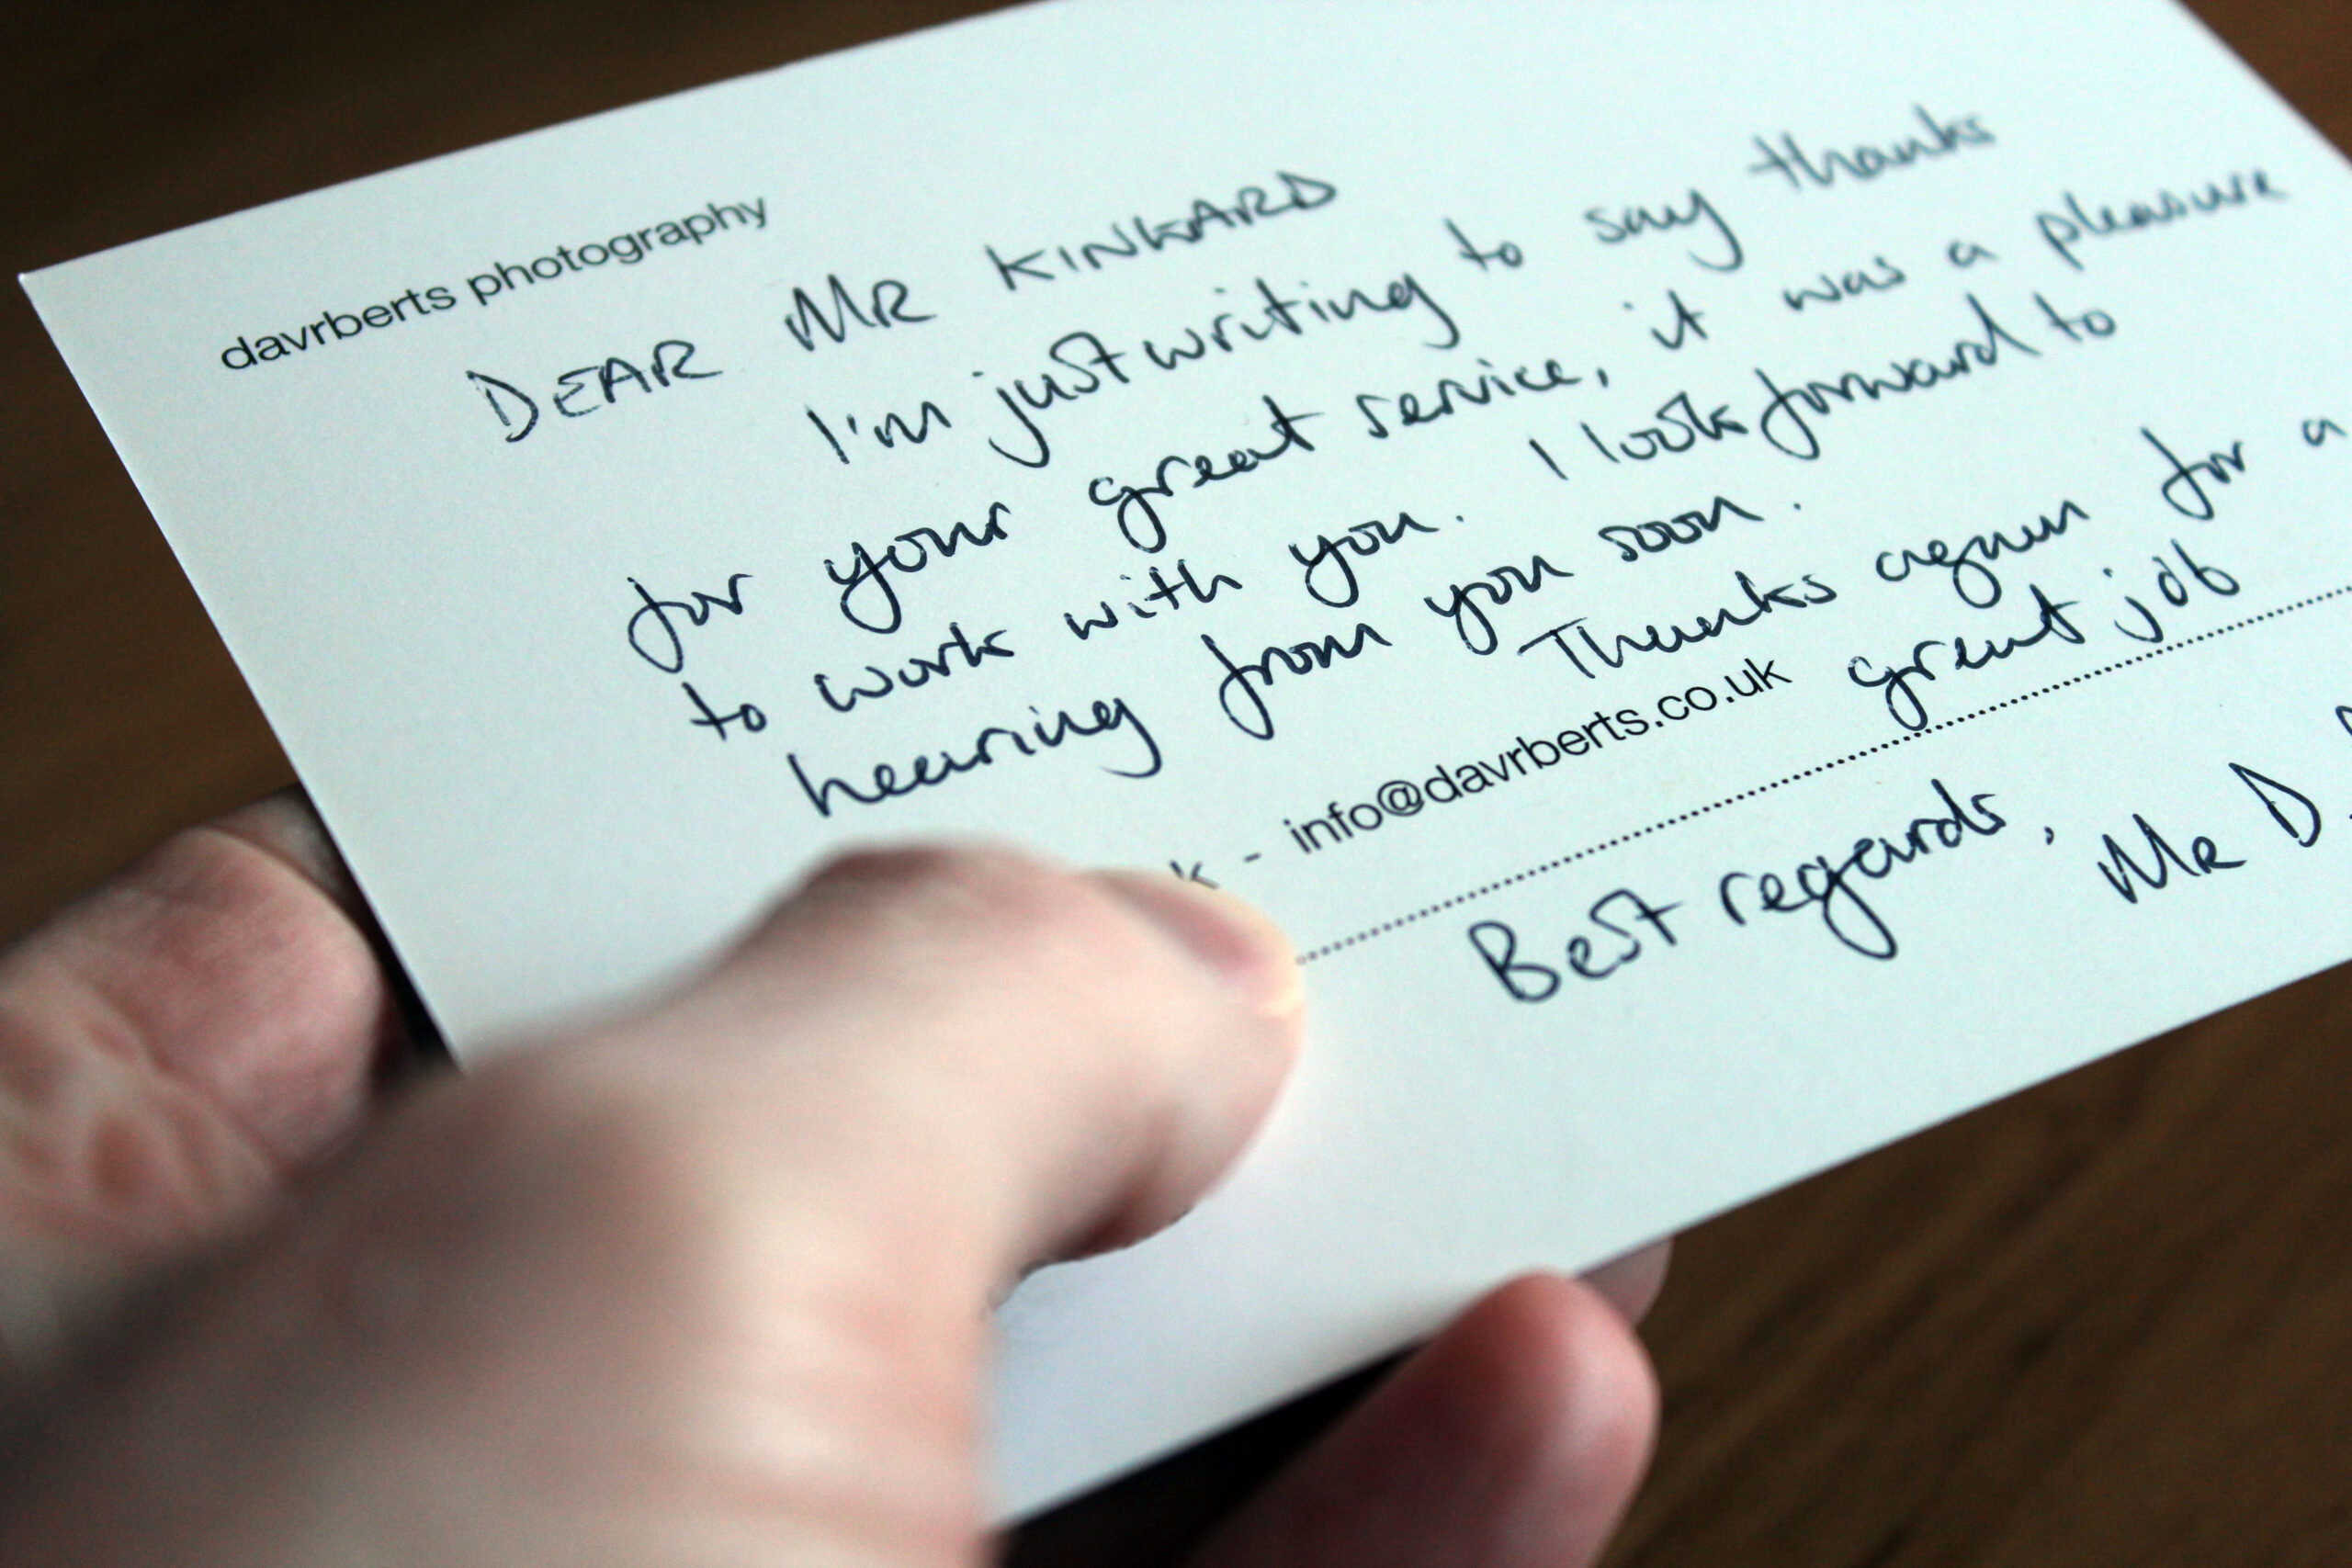 davrberts photography
DEAR MR KINKARD
I'm just writing to say thanks
for your great service, it was a pleasure
to work with you. I look forward to
hearing from you soon.
Thanks again for a
great job
k - info@davrberts.co.uk
Best regards,
MR D.